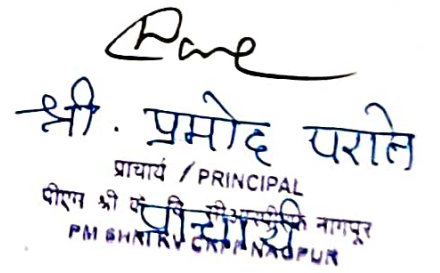 श्री. प्रमोद पराते
प्राचार्य / PRINCIPAL
पीएम श्री के वि नागपूर
प्राचार्य
PM SHRI KV CRPF NAGPUR